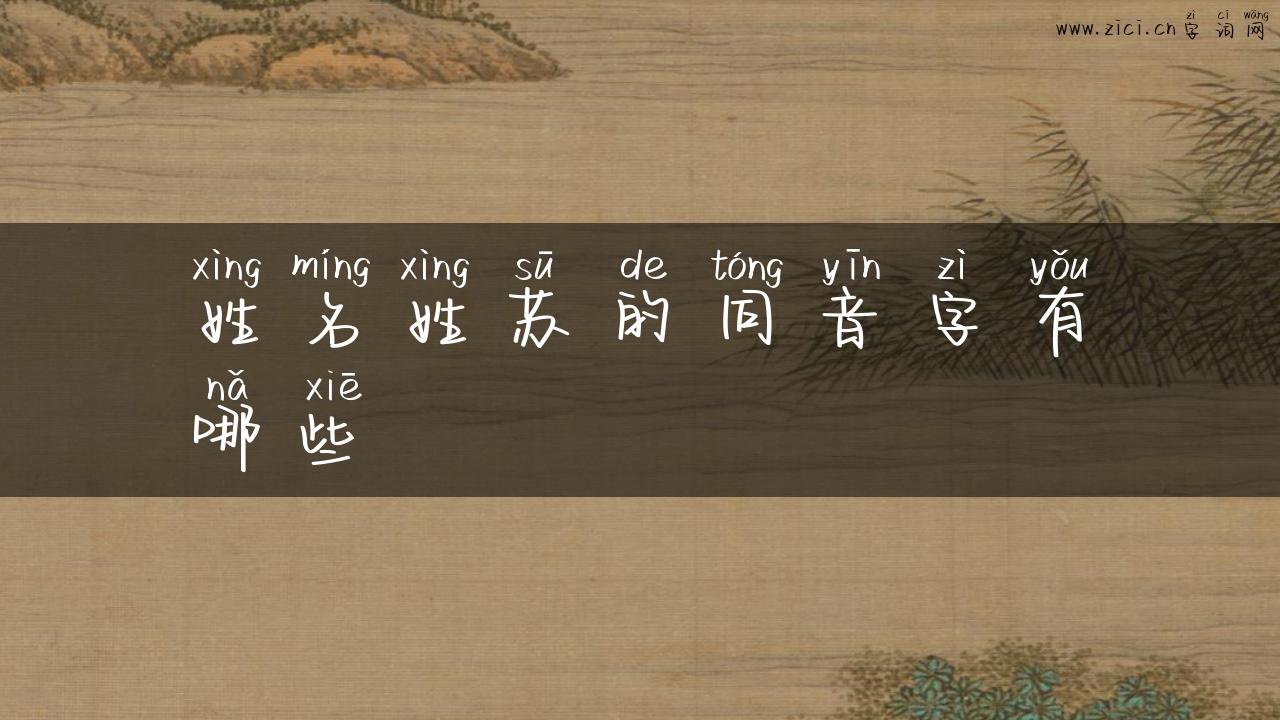 zì cí wǎng
www.zici.cn 字词网
xìng míng xìng sū de tóng yīn zì yǒu
姓名姓苏的同音字有
nǎ xiē
哪些